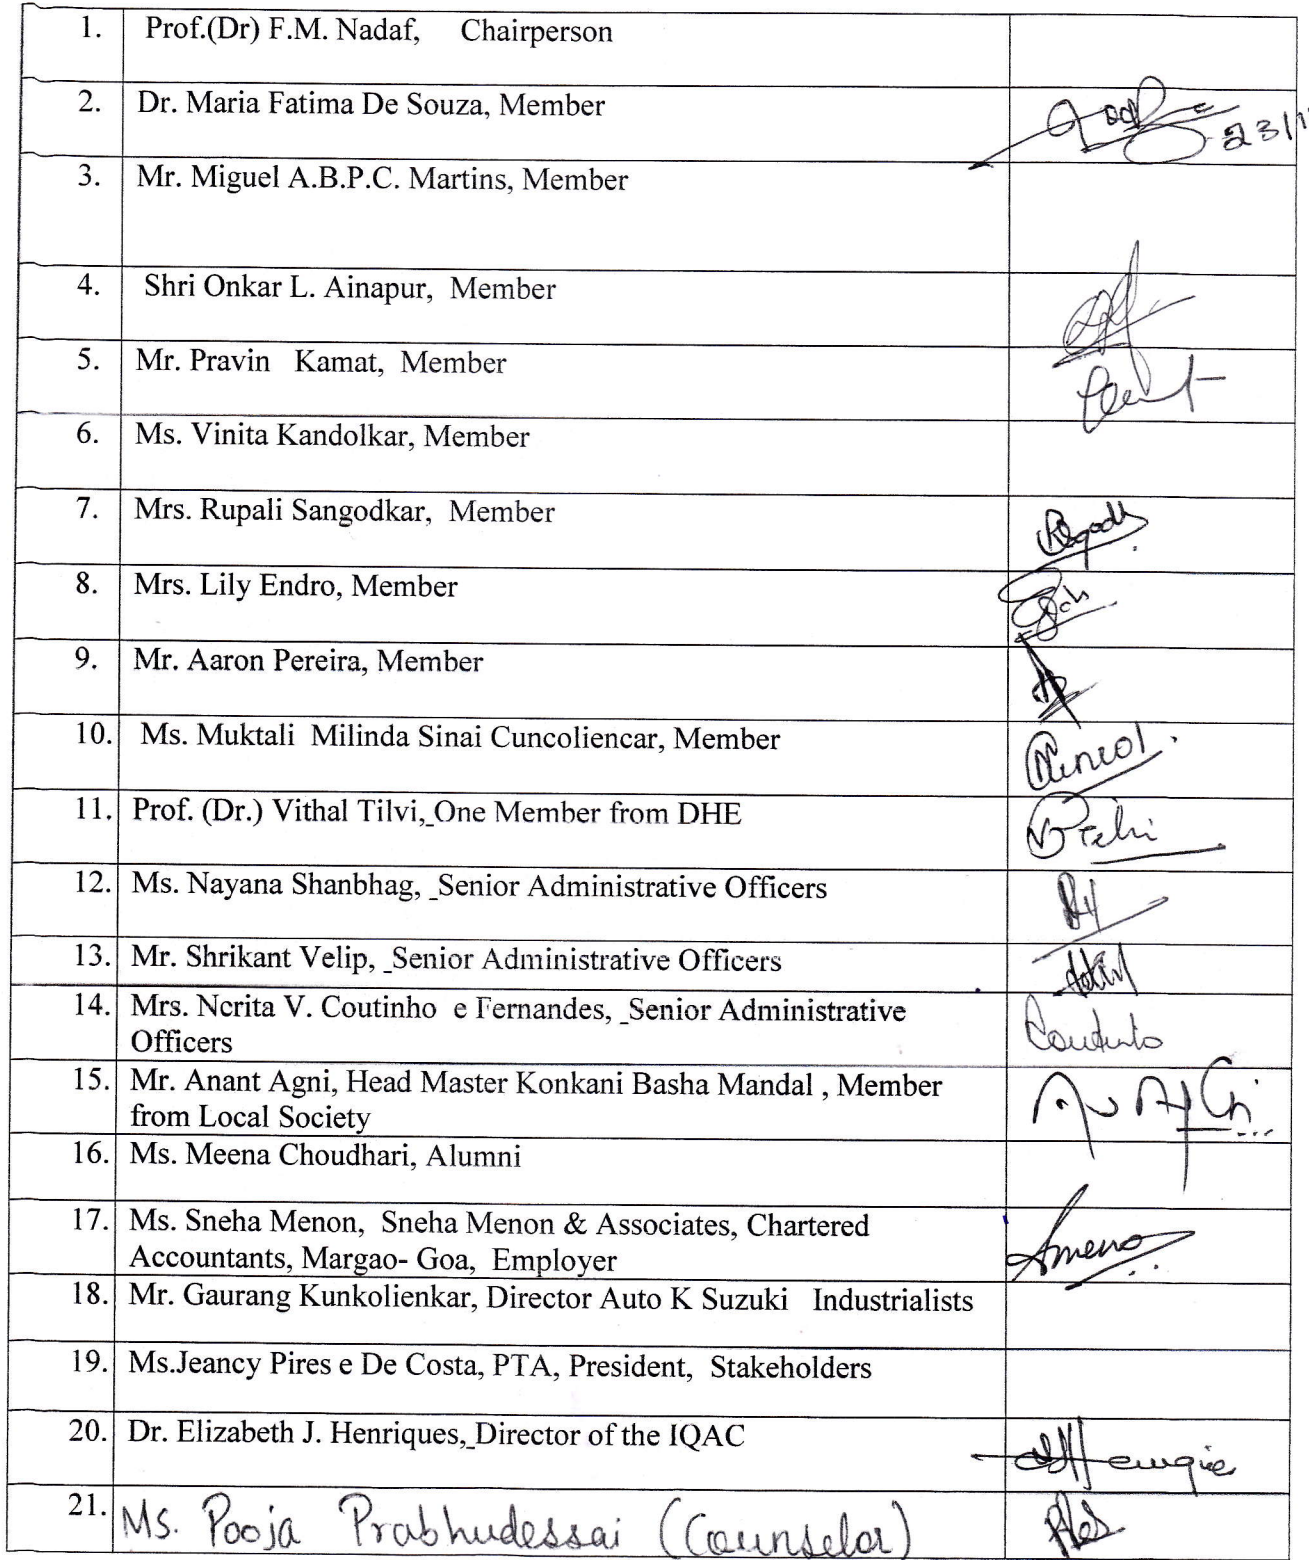 1. Prof.(Dr) F.M. Nadaf, Chairperson
2. Dr. Maria Fatima De Souza, Member
23/1
3. Mr. Miguel A.B.P.C. Martins, Member
4. Shri Onkar L. Ainapur, Member
5. Mr. Pravin Kamat, Member
6. Ms. Vinita Kandolkar, Member
7. Mrs. Rupali Sangodkar, Member
8. Mrs. Lily Endro, Member
9. Mr. Aaron Pereira, Member
10. Ms. Muktali Milinda Sinai Cuncoliencar, Member
11. Prof. (Dr.) Vithal Tilvi,_One Member from DHE
12. Ms. Nayana Shanbhag, _Senior Administrative Officers
13. Mr. Shrikant Velip, _Senior Administrative Officers
14. Mrs. Nerita V. Coutinho e Fernandes, _Senior Administrative
Officers
Coutinho
15. Mr. Anant Agni, Head Master Konkani Basha Mandal , Member
from Local Society
16. Ms. Meena Choudhari, Alumni
17. Ms. Sneha Menon, Sneha Menon & Associates, Chartered
Accountants, Margao- Goa, Employer
18. Mr. Gaurang Kunkolienkar, Director Auto K Suzuki Industrialists
19. Ms.Jeancy Pires e De Costa, PTA, President, Stakeholders
20. Dr. Elizabeth J. Henriques,_Director of the IQAC
21. Ms. Pooja Prabhudessai (Counselor)